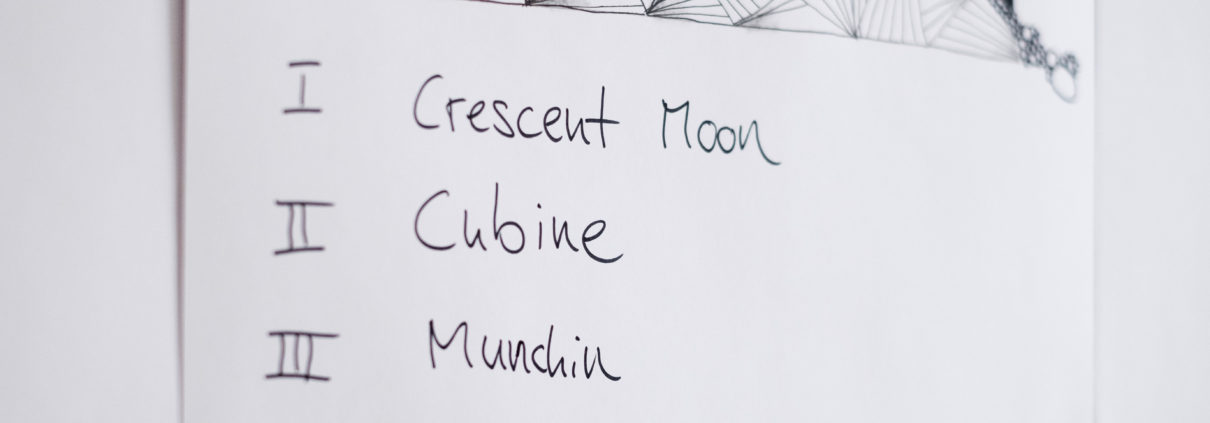 I Crescent Moon
II Cubine
III Munchin